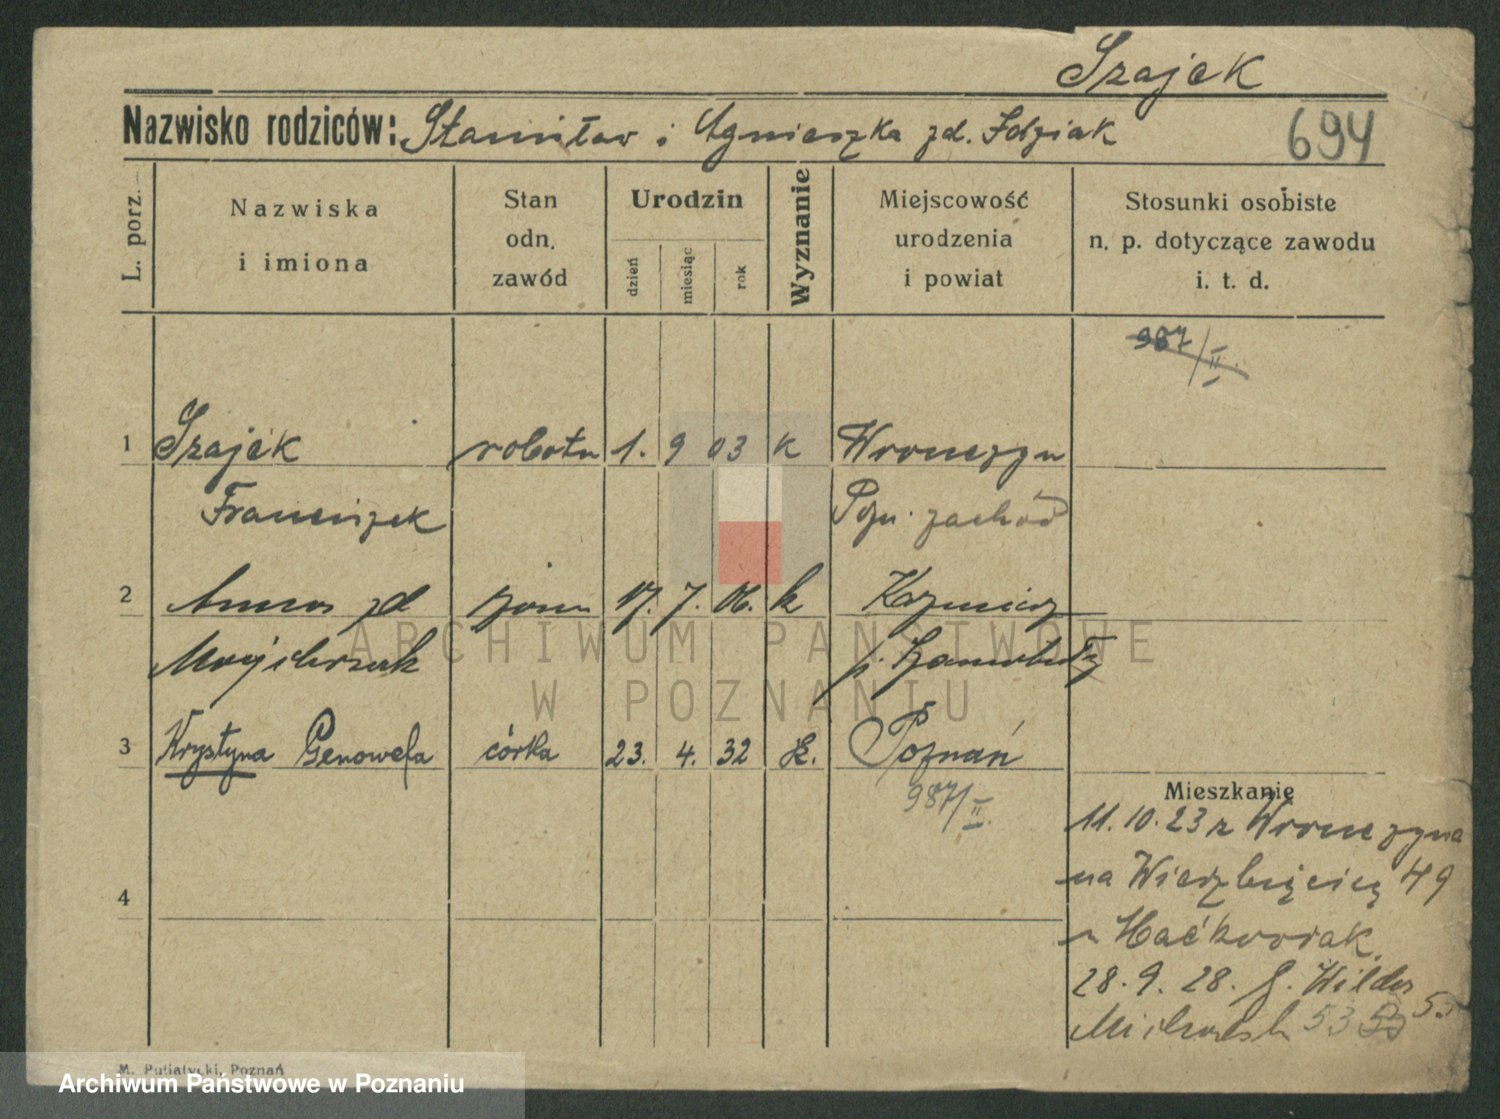 Szajek
Nazwisko rodziców: Stanisław i Agnieszka zd. Idziak
694
L. porz.
Nazwiska
i imiona
Stan
odn.
zawód
Urodzin
dzień
miesiąc
rok
Wyznanie
Miejscowość
urodzenia
i powiat
Stosunki osobiste
n. p. dotyczące zawodu
i. t. d.
987/II.
1 Szajek robotn 1. 9 03 k Wronczyn
Franciszek Pozn. zachód
2 Anna zd żona 17. 7. 06. k Kazmierz
Wojcieszak p. Szamotuły
3 Krystyna Genowefa córka 23. 4. 32 k. Poznań
987/II.
4
Mieszkanie
11.10.23 z Wronczyna
na Wierzbięcicą 49
u Haćkowiak
28. 9. 28. G. Wilda
53 53
M. Putiatycki, Poznań
ARCHIWUM PAŃSTWOWE
W POZNANIU
Archiwum Państwowe w Poznaniu